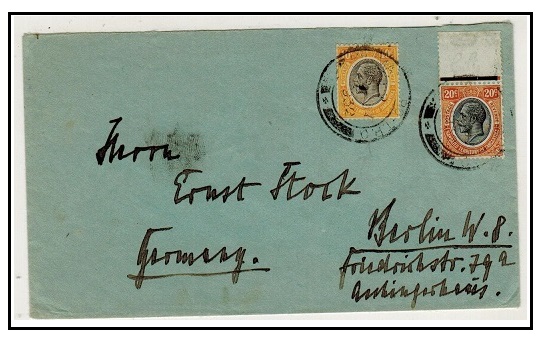 Herrn
Ernst Stock
Berlin W. 8.
Friedrichstr. 79a
Germany.
20c 20c